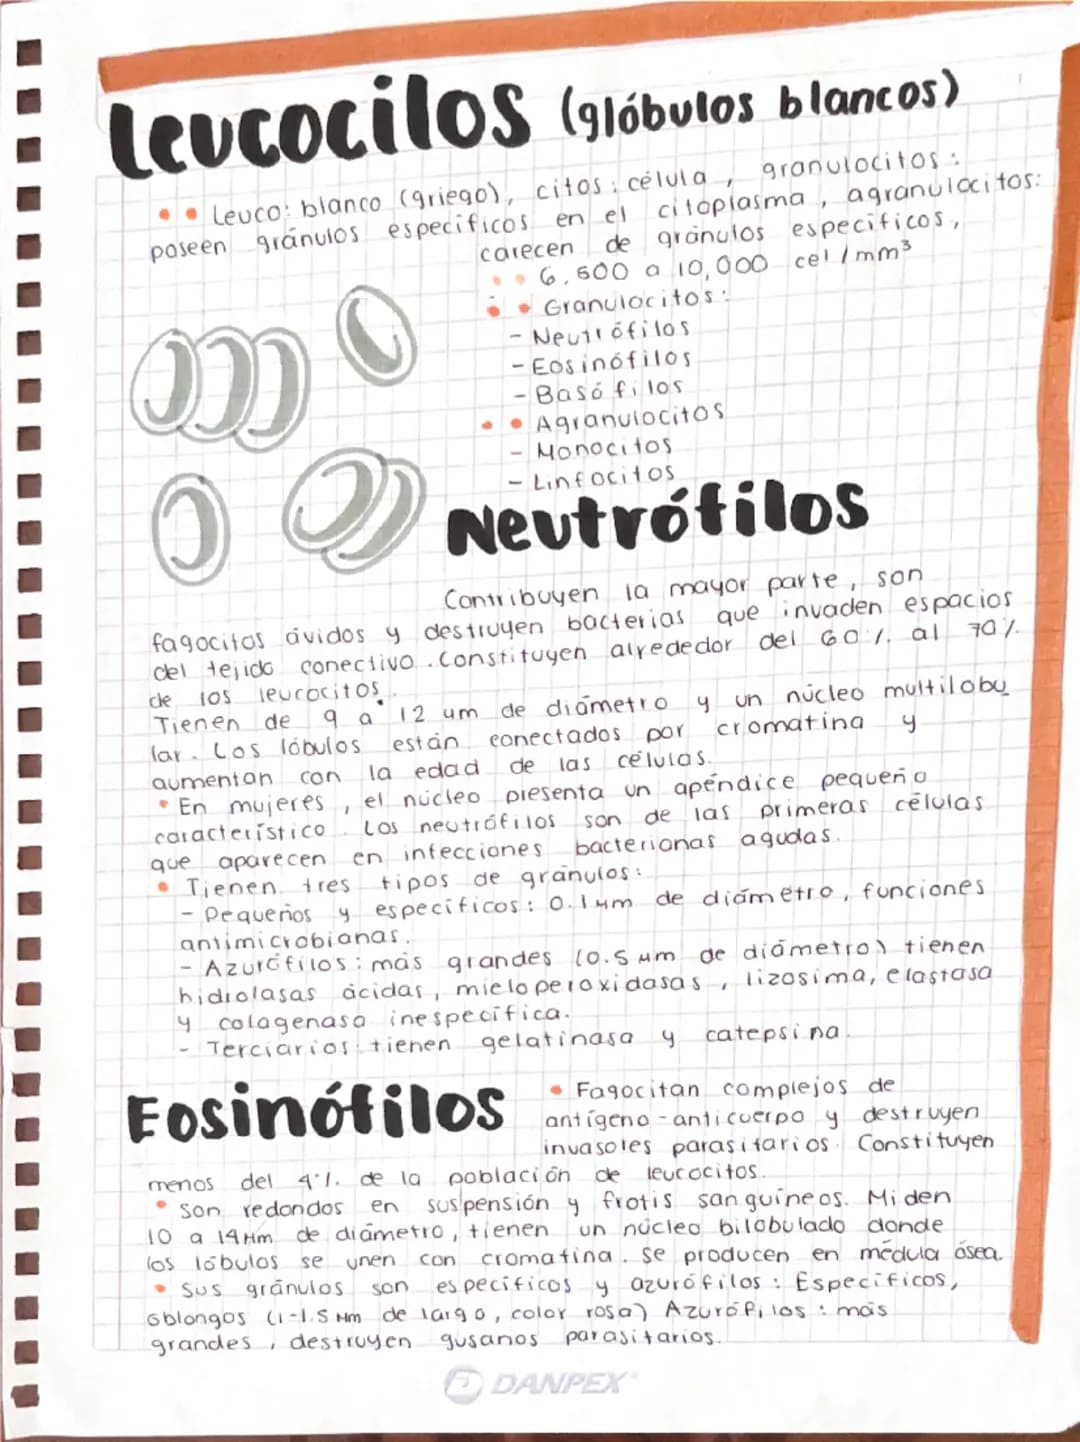 Leucocitos (glóbulos blancos)
Leuco: blanco (griego), citos: célula, granulocitos:
poseen gránulos específicos en el citoplasma, agranulocitos:
carecen de gránulos específicos,
6,500 a 10,000 cel/mm³
Granulocitos:
- Neutrófilos
- Eosinófilos
- Basófilos
Agranulocitos
- Monocitos
- Linfocitos
Neutrófilos
Contribuyen la mayor parte, son
fagocitos ávidos y destruyen bacterias que invaden espacios
del tejido conectivo. Constituyen alrededor del 60% al 70%
de los leucocitos.
Tienen de 9 a 12 um de diámetro y un núcleo multilobu
lar. Los lóbulos están conectados por cromatina y
aumentan con la edad de las células.
• En mujeres, el núcleo presenta un apéndice pequeño
característico. Los neutrófilos son de las primeras células
que aparecen en infecciones bacterianas agudas.
• Tienen tres tipos de gránulos:
- Pequeños y específicos: 0.1 µm de diámetro, funciones
antimicrobianas.
- Azurófilos: más grandes (0.5 µm de diámetro) tienen
hidrolasas ácidas, mieloperoxidasas, lizosima, elastasa
y colagenasa inespecífica.
- Terciarios: tienen gelatinasa y catepsina.
Eosinófilos
• Fagocitan complejos de
antígeno-anticuerpo y destruyen
invasores parasitarios. Constituyen
menos del 4% de la población de leucocitos.
• Son redondos en suspensión y frotis sanguíneos. Miden
10 a 14 µm de diámetro, tienen un núcleo bilobulado donde
los lóbulos se unen con cromatina. Se producen en médula ósea.
• Sus gránulos son específicos y azurófilos: Específicos,
oblongos (1-1.5 µm de largo, color rosa) Azurófilos: más
grandes, destruyen gusanos parasitarios.
DANPEX